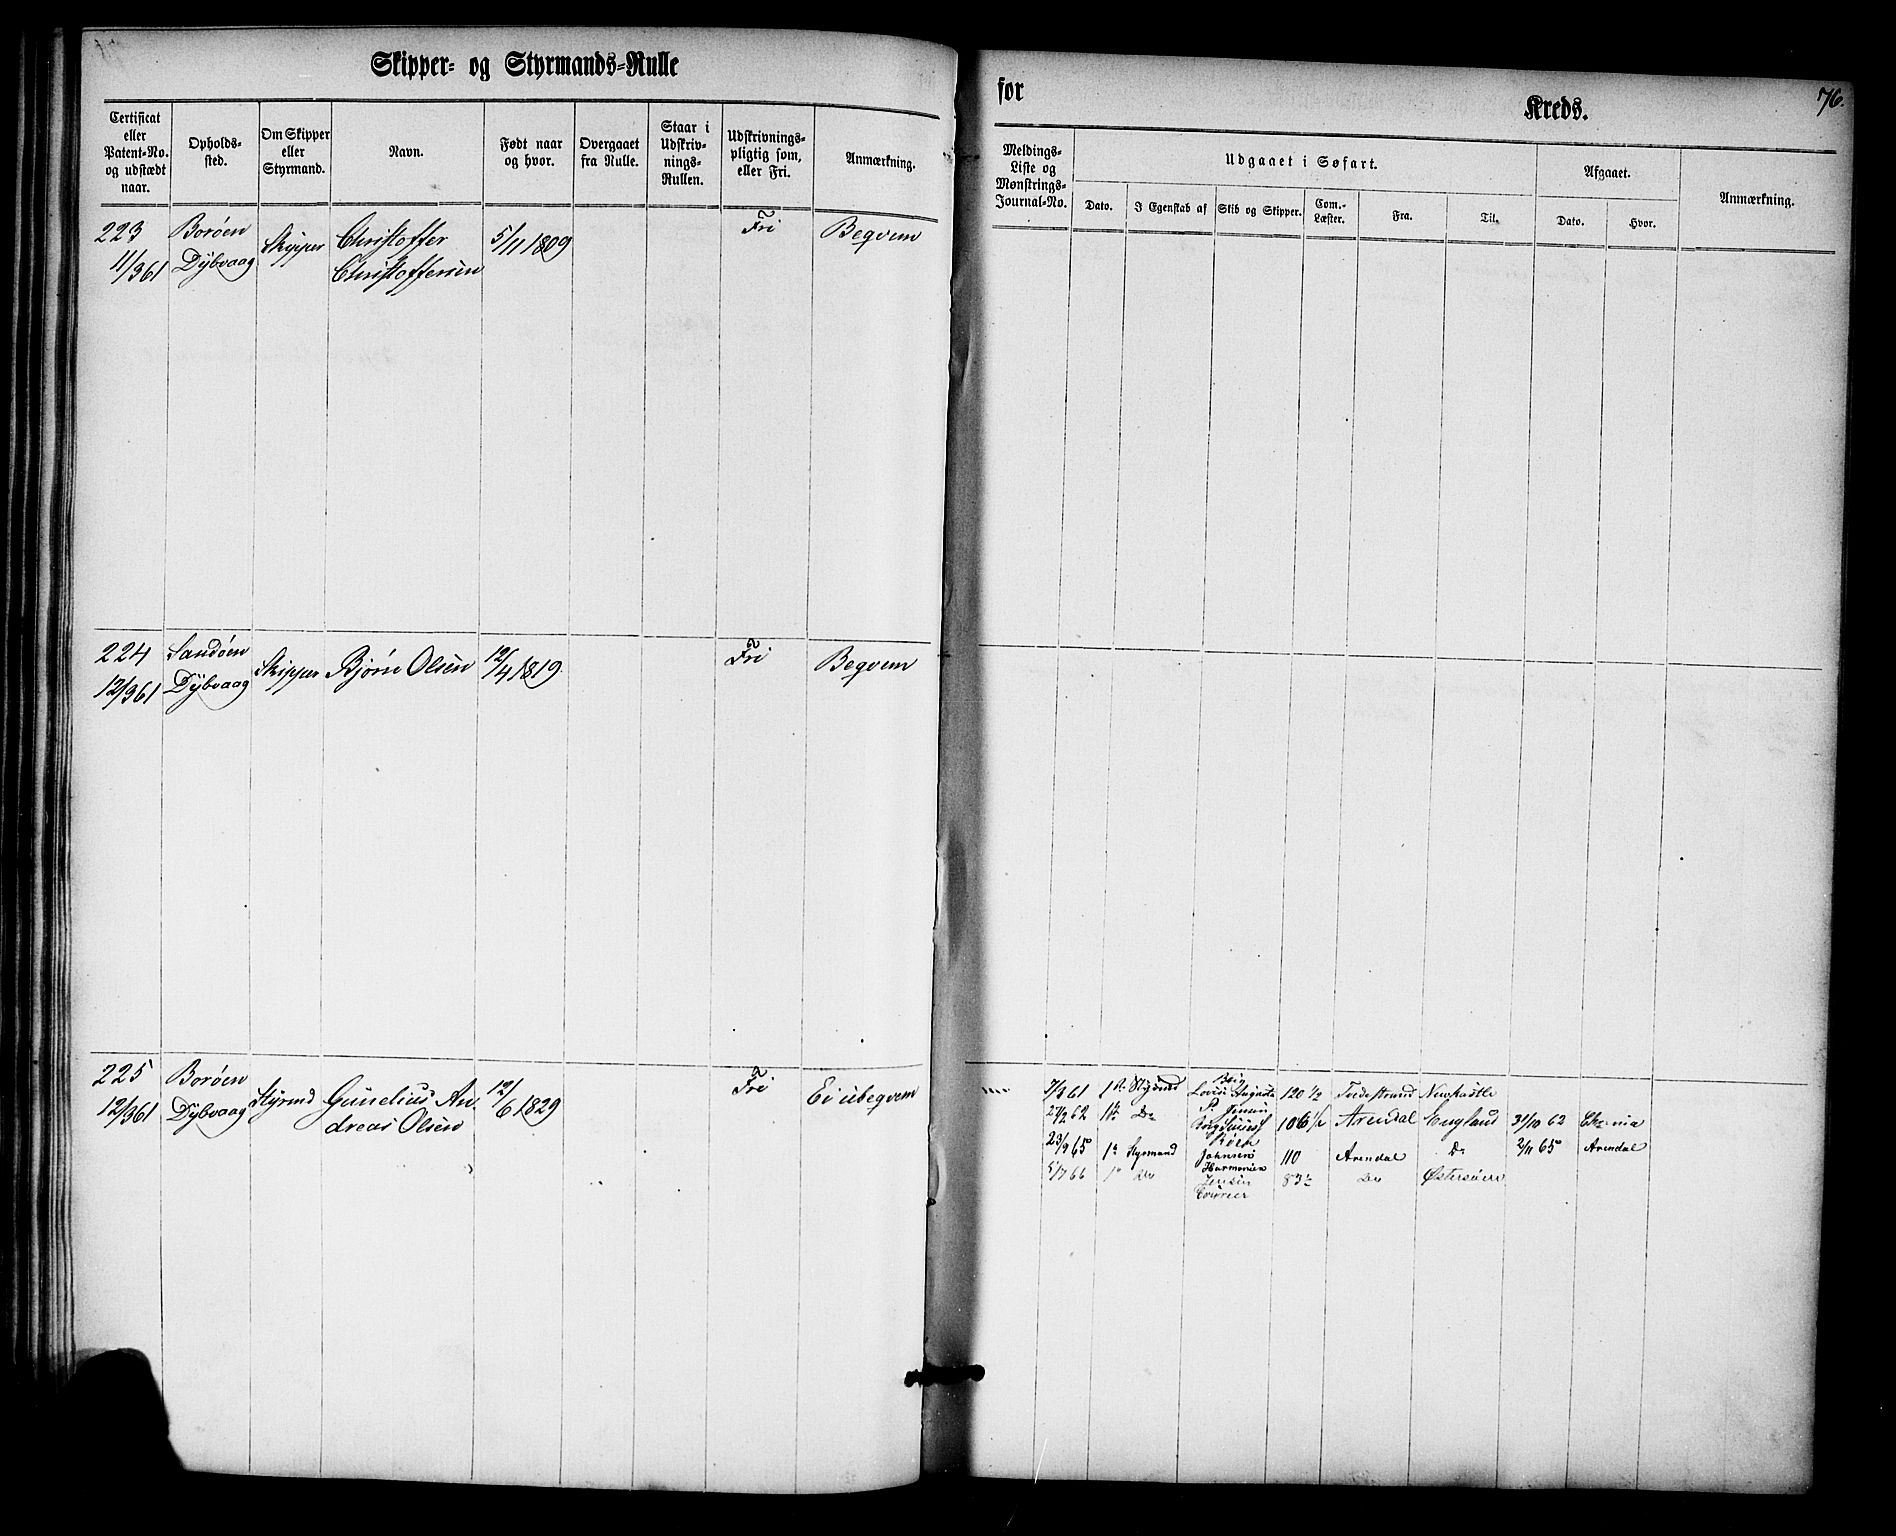 Skipper- og Styrmands-Rulle
Certificat eller Patent-No. og udstædt naar.
Opholds-sted.
Om Skipper eller Styrmand.
Navn.
Født naar og hvor.
Overgaaet fra Rulle.
Staar i Udskriv-nings-Rullen.
Udskrivnings-pligtig som, eller Fri.
Anmærkning.
223 Borøen Skipper Christoffer 5/11 1809 Fri Begvem
11/3 61 Dybvaag Christoffersen
224 Sandøen Skipper Bjørn Olsen 12/4 1819. Fri Begvem
12/3 61 Dybvaag
225 Borøen Styrmd Gunelius An- 12/6 1829 Fri Ei ubegvem
12/3 61 Dybvaag dreas Olsen
for Kreds. 76.
Meldings-Liste og Mønstrings-Journal-No.
Udgaaet i Søfart.
Dato.
I Egenskab af
Skib og Skipper.
Com.-Læster.
Fra.
Til.
Afgaaet.
Dato.
Hvor.
Anmærkning.
7/3 61 1st Styrmd Brig Lovise Augusta 120 1/2 Tvedestrand Newkastle
Jensen
27/2 62 1st Do 106 1/2 Arendal England 31/10 62 Chr:nia
23/9 65 1st Styrmand Johnsen 110 Arendal Do 2/11 65 Arendal
5/7 66 1st Do Harmonien Jensen 83 1/2 Do Østersøen